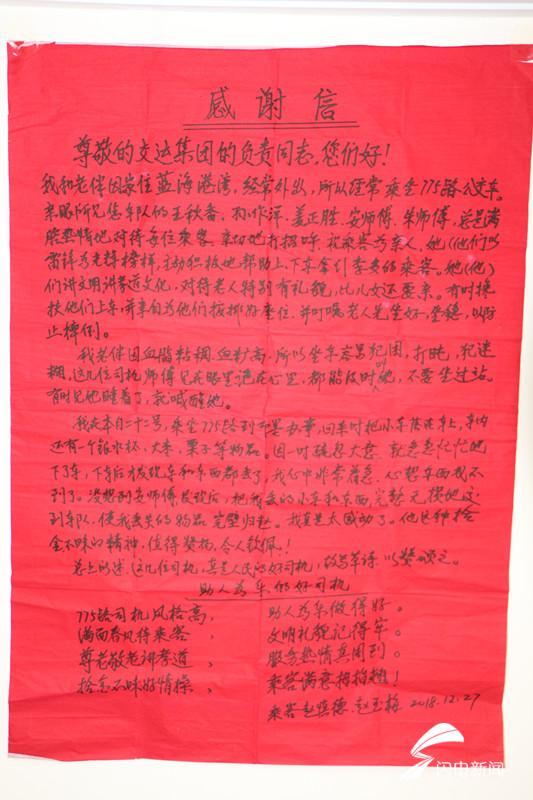 感谢信
尊敬的交运集团的负责同志，您们好！
我和老伴因家住蓝海港湾，经常外出，所以经常乘坐775路公交车。
亲眼所见您车队的王秋香、姜正胜、安师傅、朱师傅，总是满
腔热情地对待每位乘客，亲切地打招呼，视乘客为亲人，她(他)们以
雷锋为光辉榜样，主动积极地帮助上、下车拿引李多的乘客。她(他)
们讲文明讲孝道文化，对待老人特别有礼貌，比儿女还要亲。有时搀
扶他们上车，并亲自为他们安排座位，并叮嘱老人先坐好、坐稳，以防
止摔倒。
我老伴因血脂粘稠、血糖高，所以坐车容易犯困，打盹，犯迷
糊，这几位司机师傅见在眼里记在心里，都能及时，不要坐过站。
有时见他睡着了，就喊醒他。
我在本月二十二号，乘坐775路到即墨办事，回来时把小车落在车上，车内
还有一个银水杯、大米、栗子等物品。因一时疏忽大意，就急急忙忙地
下了车，下车后才发现车和东西都丢了，我心中非常着急，心想东西找不
到了。没想到安师傅发现后，把我丢的小车和东西完整无损地送
到车队，使我丢失的物品完璧归赵。我真是太感动了。他这种拾
金不昧的精神，值得赞扬，令人钦佩！
总上所述，这几位司机，真是人民的好司机，故写草诗以赞颂之。
助人为乐的好司机
775路司机风格高，助人为乐做得好。
满面春风待乘客，文明礼貌记得牢。
尊老敬老讲孝道，服务热情真周到。
拾金不昧好情操，乘客满意拍拍翘！
乘客赵慎德、赵玉梅 2018.12.27
闪电新闻